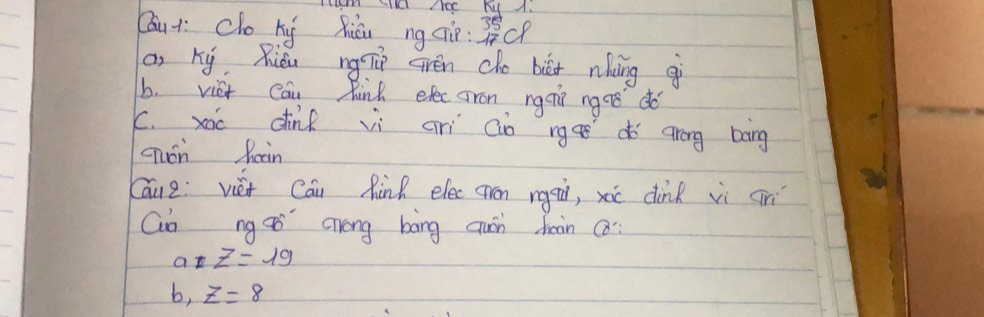 Học Kỳ 1:
Câu 1: Cho ký hiệu ngtử: ³⁵₁₇Cl
a, Ký hiệu ngtử trên cho biết những gì
b. viết cấu hình elec tron ngtử ngtố đó
c. xác định vị trí của ngtố đó trong bảng
tuần hoàn
Câu 2: viết cấu hình elec tron ngtử, xác định vị trí
của ngtố trong bảng tuần hoàn có:
a, Z = 19
b, Z = 8